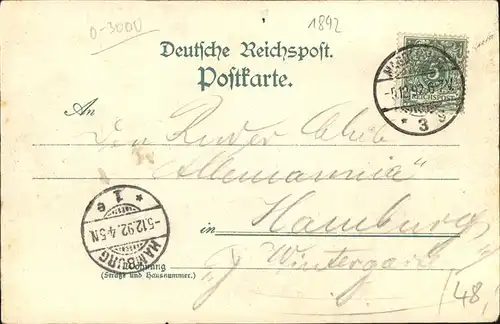 0-3000
1892
Deutsche Reichspost.
Postkarte.
5
-5.12.92.
* 3
An
Den Ruder Club
"Allemannia"
in Hamburg
Wintergarten
* 1 e
-5.12.92. 4-5N
HAMBURG
Wohnung
(Straße und Hausnummer.)
48,